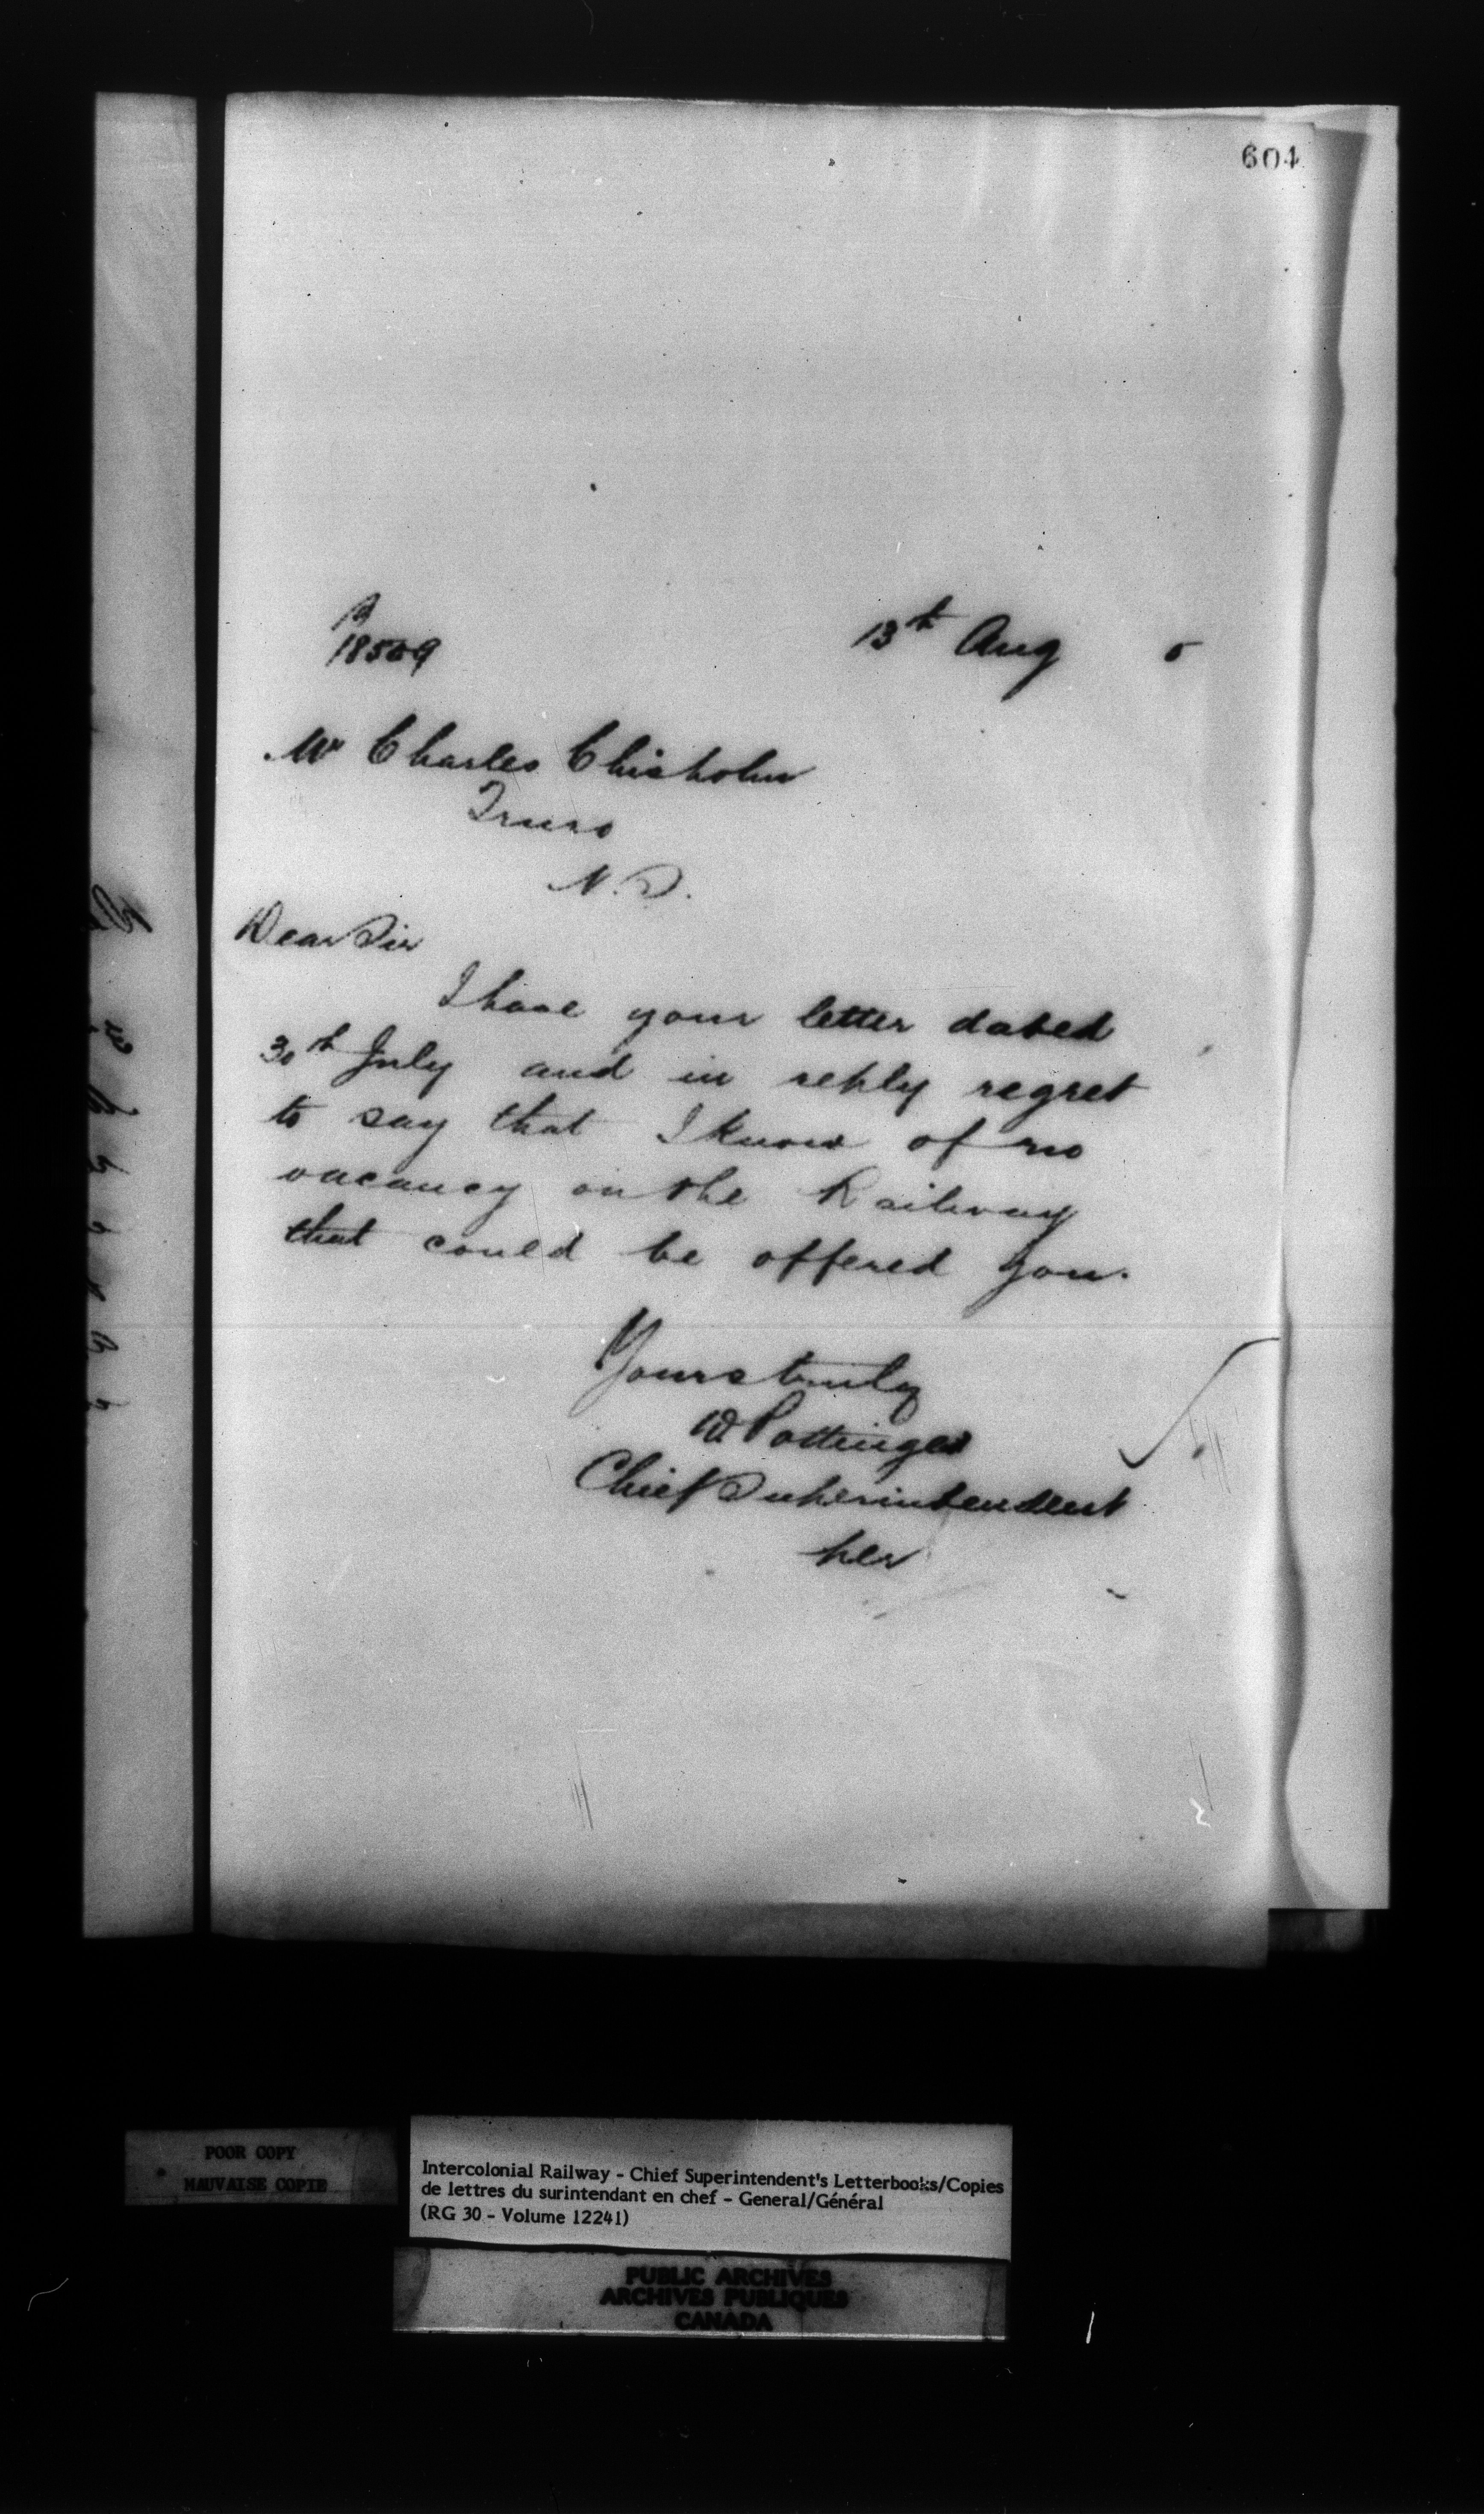 604
18509
13th Aug 5
Mr Charles Chisholm
Truro
N.S.
Dear Sir
I have your letter dated
30th July and in reply regret
to say that I know of no
vacancy on the Railway
that could be offered you.
Yours truly
D Pottinger
Chief Superintendent
per
POOR COPY
MAUVAISE COPIE
Intercolonial Railway - Chief Superintendent's Letterbooks/Copies
de lettres du surintendant en chef - General/Général
(RG 30 - Volume 12241)
PUBLIC ARCHIVES
ARCHIVES PUBLIQUES
CANADA